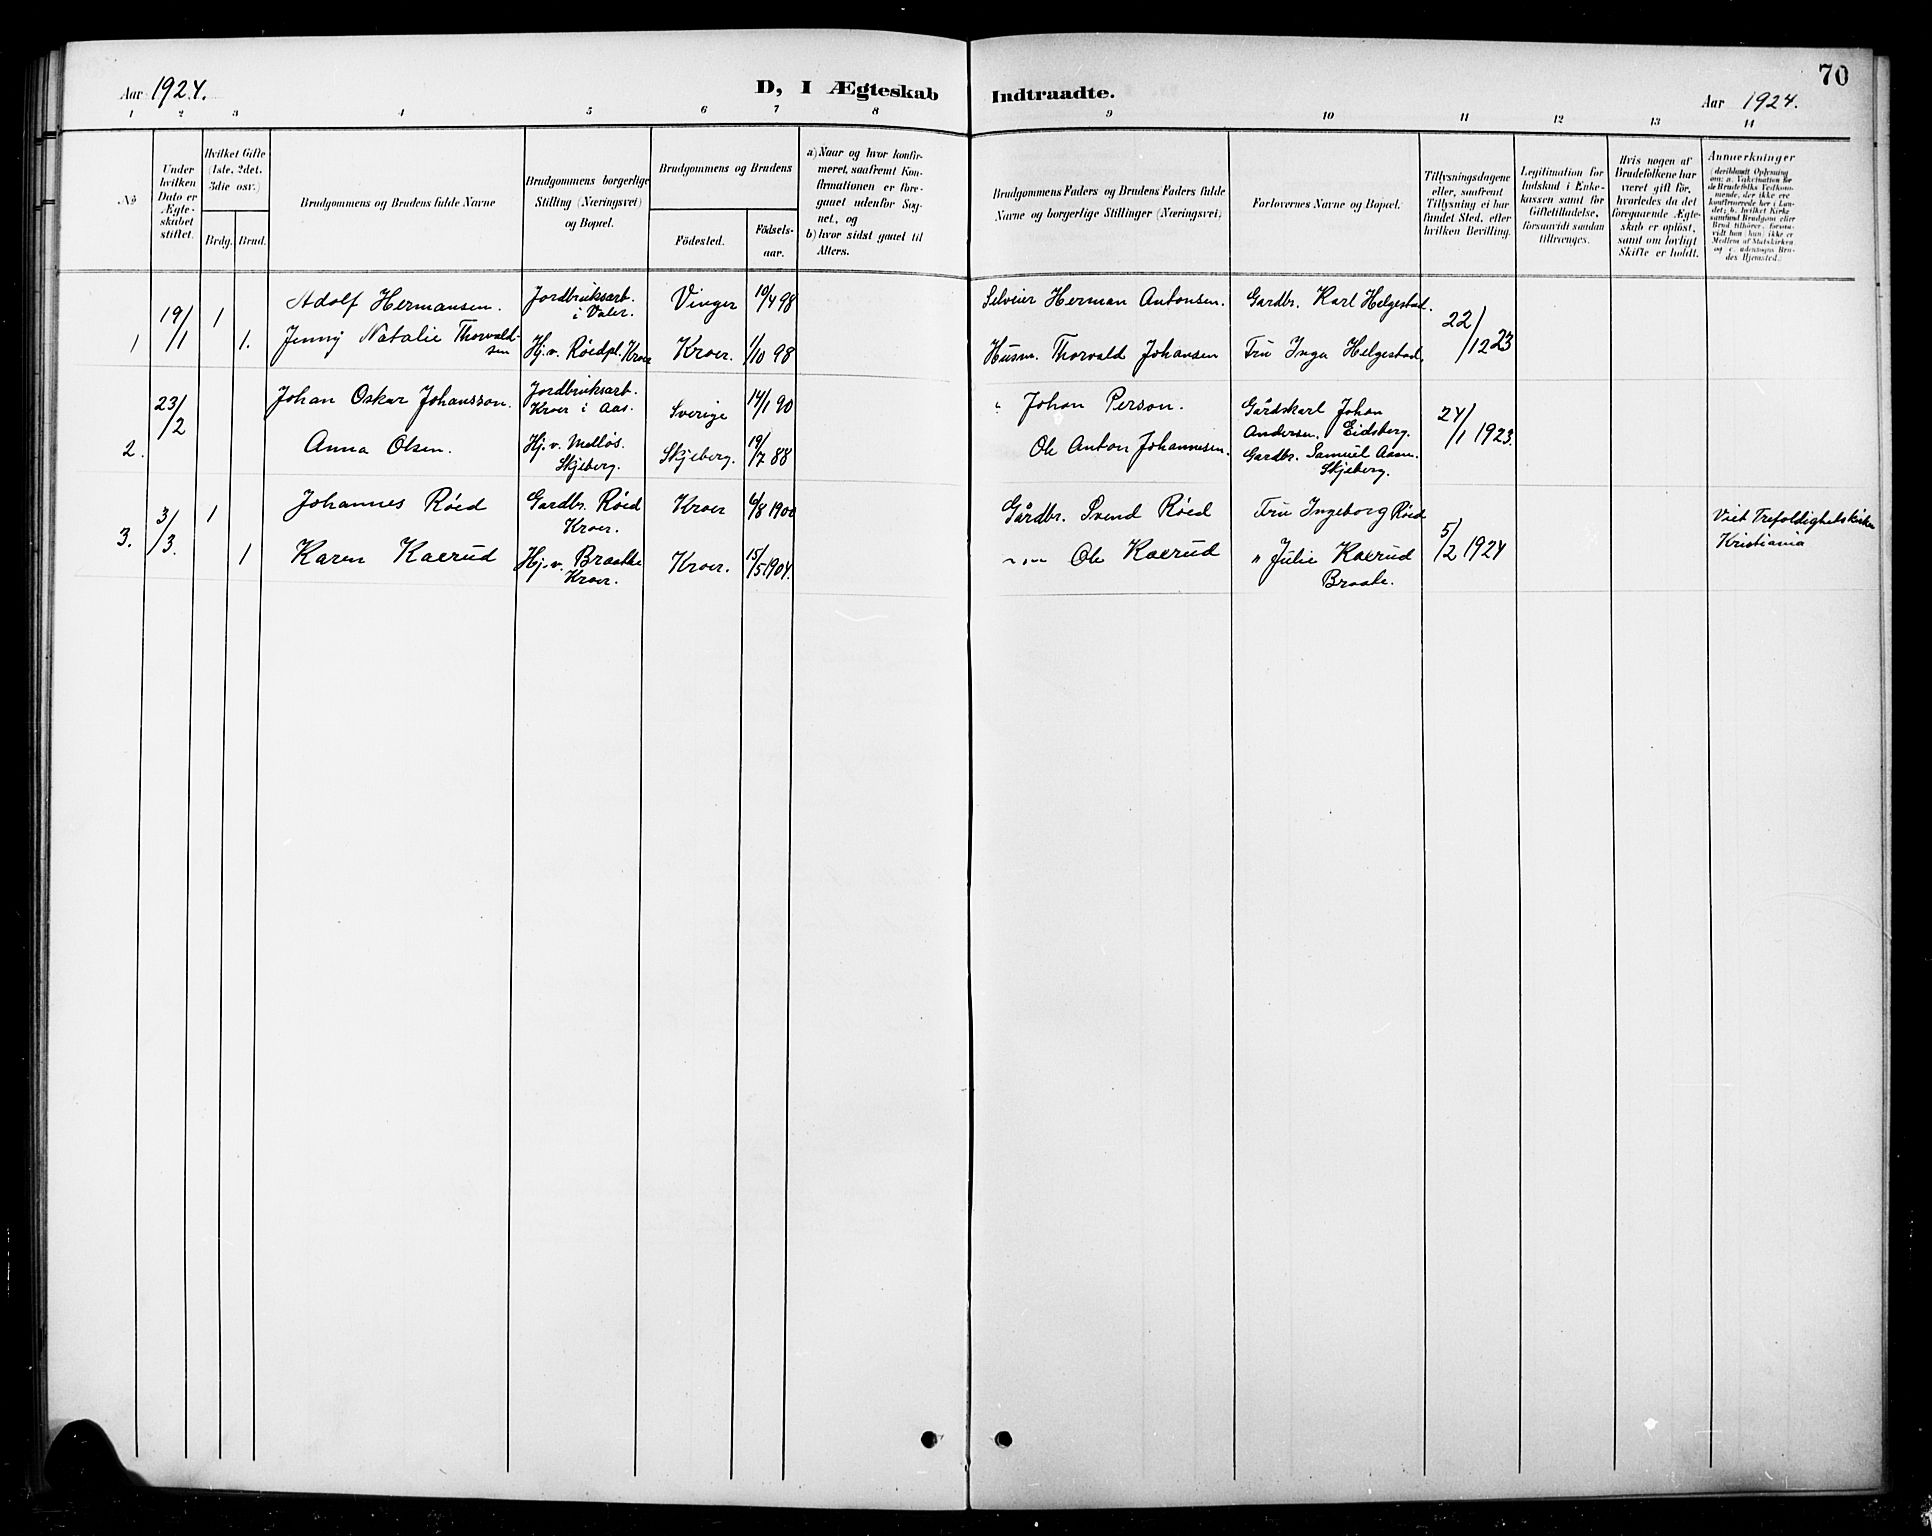 70
Aar 1924.
D, I Ægteskab Indtraadte.
Aar 1924.
1 2 3 4 5 6 7 8 9 10 11 12 13 14
No
Under hvilken Dato er Ægteskabet stiftet.
Hvilket Gifte (1ste, 2det, 3die osv.)
Brdg. Brud.
Brudgommens og Brudens fulde Navne
Brudgommens borgerlige Stilling (Næringsvei) og Bopæl.
Brudgommens og Brudens
Födested.
Födsels-aar.
a) Naar og hvor konfirmeret, saafremt Konfirmationen er foregaaet udenfor Sognet, og
b) hvor sidst gaaet til Alters.
Brudgommens Faders og Brudens Faders fulde Navne og borgerlige Stillinger (Næringsvei)
Forlovernes Navne og Bopæl.
Tillysningsdagene eller, saafremt Tillysning ei har fundet Sted, efter hvilken Bevilling.
Legitimation for Indskud i Enkekassen samt for Giftetilladelse, forsaavidt saadan tiltrænges.
Hvis nogen af Brudefolkene har været gift før, hvorledes da det foregaaende Ægteskab er oplöst, samt om lovligt Skifte er holdt.
Anmerkninger
(deriblandt Oplysning om: a. Vakcination for de Brudefolks Vedkommende, der ikke ere konfirmerede her i Landet; b. hvilket Kirkesamfund Brudgom eller Brud tilhörer, forsaavidt han (hun) ikke er Medlem af Statskirken og c. udensogns Brudes Hjemsted.)
1 19/1 1 Adolf Hermansen. Jordbruksarb. i Våler. Vinger 10/4 98 Selveier Herman Antonsen. Gardbr. Karl Helgestad. 22/12 23
1. Jenny Natalie Thorvaldsen Hj. v. Røedpl. Kroer Kroer. 1/10 98 Husm. Thorvald Johansen Fru Inga Helgestad
2. 23/2 Johan Oskar Johansson. Jordbruksarb. Kroer i Aas. Sverige 14/1 90 " Johan Person. Gårdskarl Johan Andersen, Eidsberg. 24/1 1923.
Anna Olsen. Hj. v. Melløs. Skjeberg. Skjeberg. 19/7 88 Ole Anton Johannesen. Gardbr. Samuel Aasn. Skjeberg.
3. 3/3. 1 Johannes Røed Gardbr. Røed Kroer. Kroer 6/8 1900 Gårdbr. Svend Røed Fru Ingeborg Røed 5/2 1924 Viet Trefoldighetskirken Kristiania
1 Karen Kaerud Hj. v. Braatke Kroer. Kroer. 15/5 1904. " " Ole Kaerud " Julie Kaerud Braate.